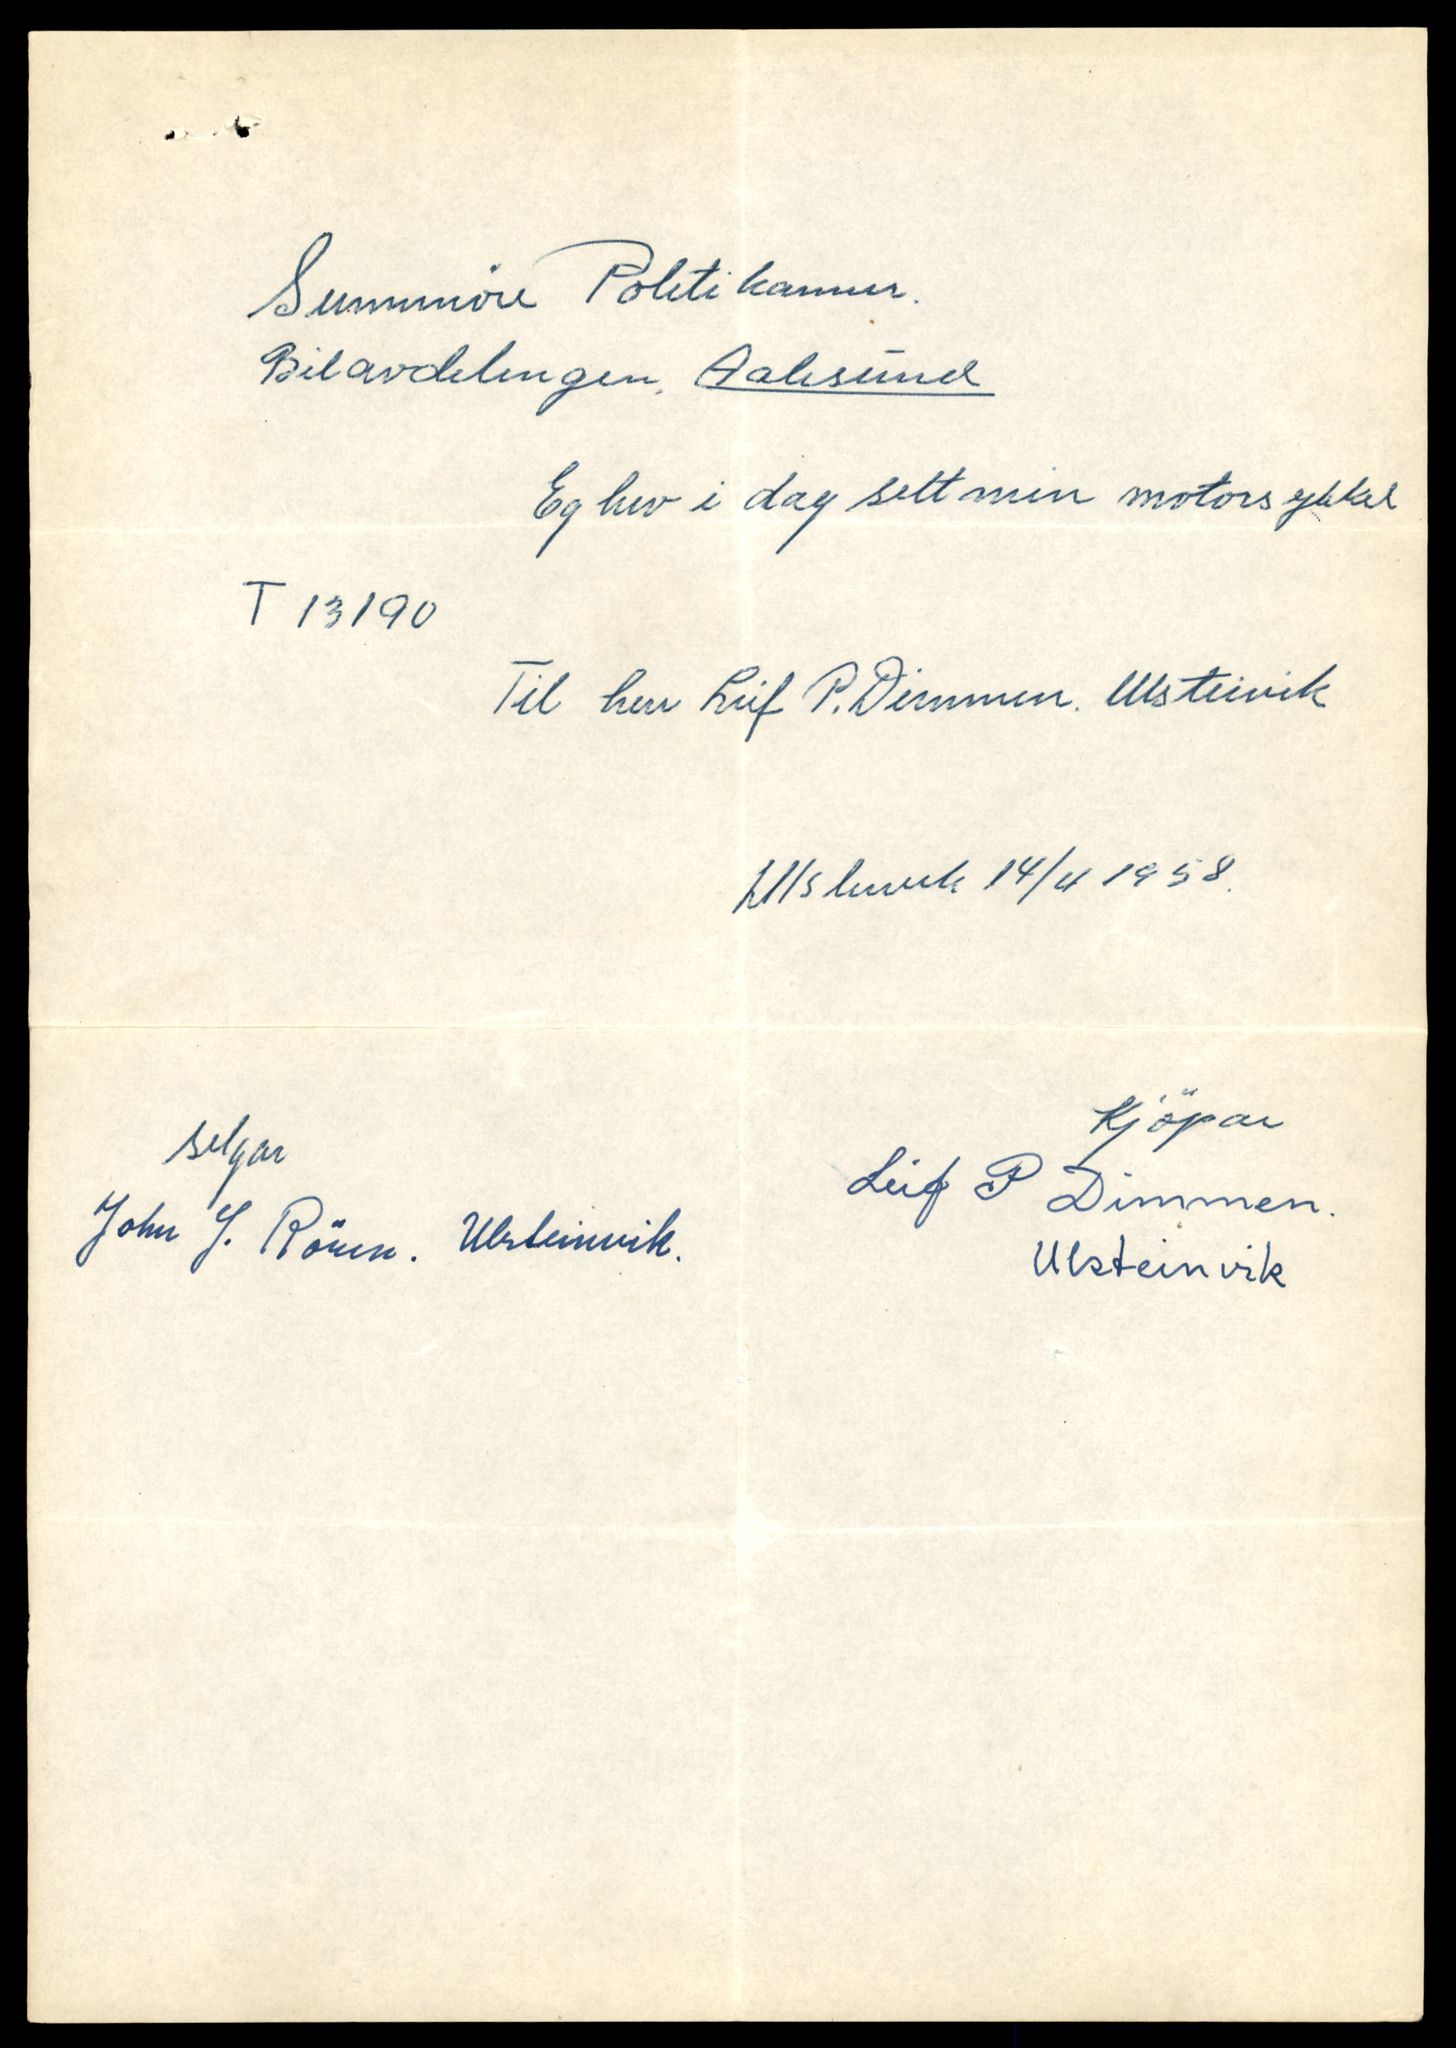 Sunnmöre Politikammer.
Bilavdelingen, Aalesund
Eg hev i dag selt min motorsykkel
T 13190
Til herr Leif P. Dimmen. Ulsteivik
Ulsteinvik 14/4 1958.
selgar
John J. Rönen. Ulsteinvik.
Kjöpar
Leif P Dimmen.
Ulsteinvik